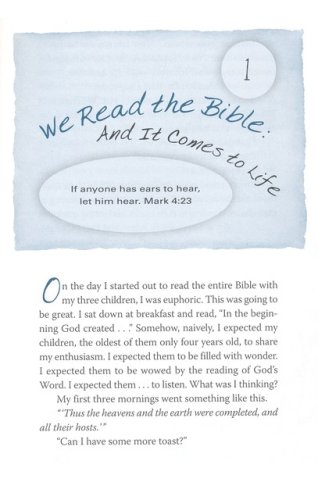 1
We Read the Bible:
And It Comes to Life
If anyone has ears to hear,
let him hear. Mark 4:23
On the day I started out to read the entire Bible with
my three children, I was euphoric. This was going to
be great. I sat down at breakfast and read, “In the begin-
ning God created . . .” Somehow, naively, I expected my
children, the oldest of them only four years old, to share
my enthusiasm. I expected them to be filled with wonder.
I expected them to be wowed by the reading of God’s
Word. I expected them . . . to listen. What was I thinking?
My first three mornings went something like this.
“‘Thus the heavens and the earth were completed, and
all their hosts.’”
“Can I have some more toast?”